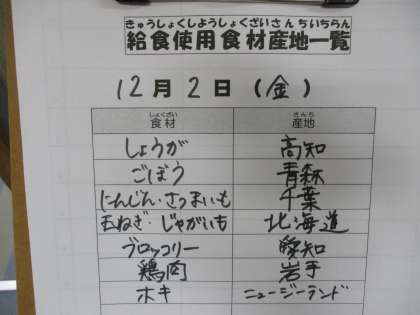 きゅうしょくしようしょくざいさんちいちらん
給食使用食材産地一覧
12月2日(金)
しょくざい さんち
食材 産地
しょうが 高知
ごぼう 青森
にんじん・さつまいも 千葉
玉ねぎ・じゃがいも 北海道
ブロッコリー 愛知
鶏肉 岩手
ホキ ニュージーランド